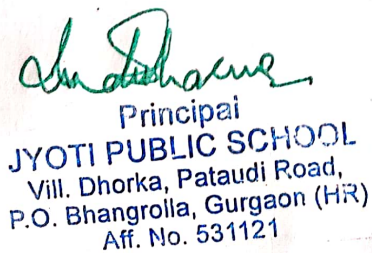 Principal
JYOTI PUBLIC SCHOOL
Vill. Dhorka, Pataudi Road,
P.O. Bhangrolla, Gurgaon (HR)
Aff. No. 531121